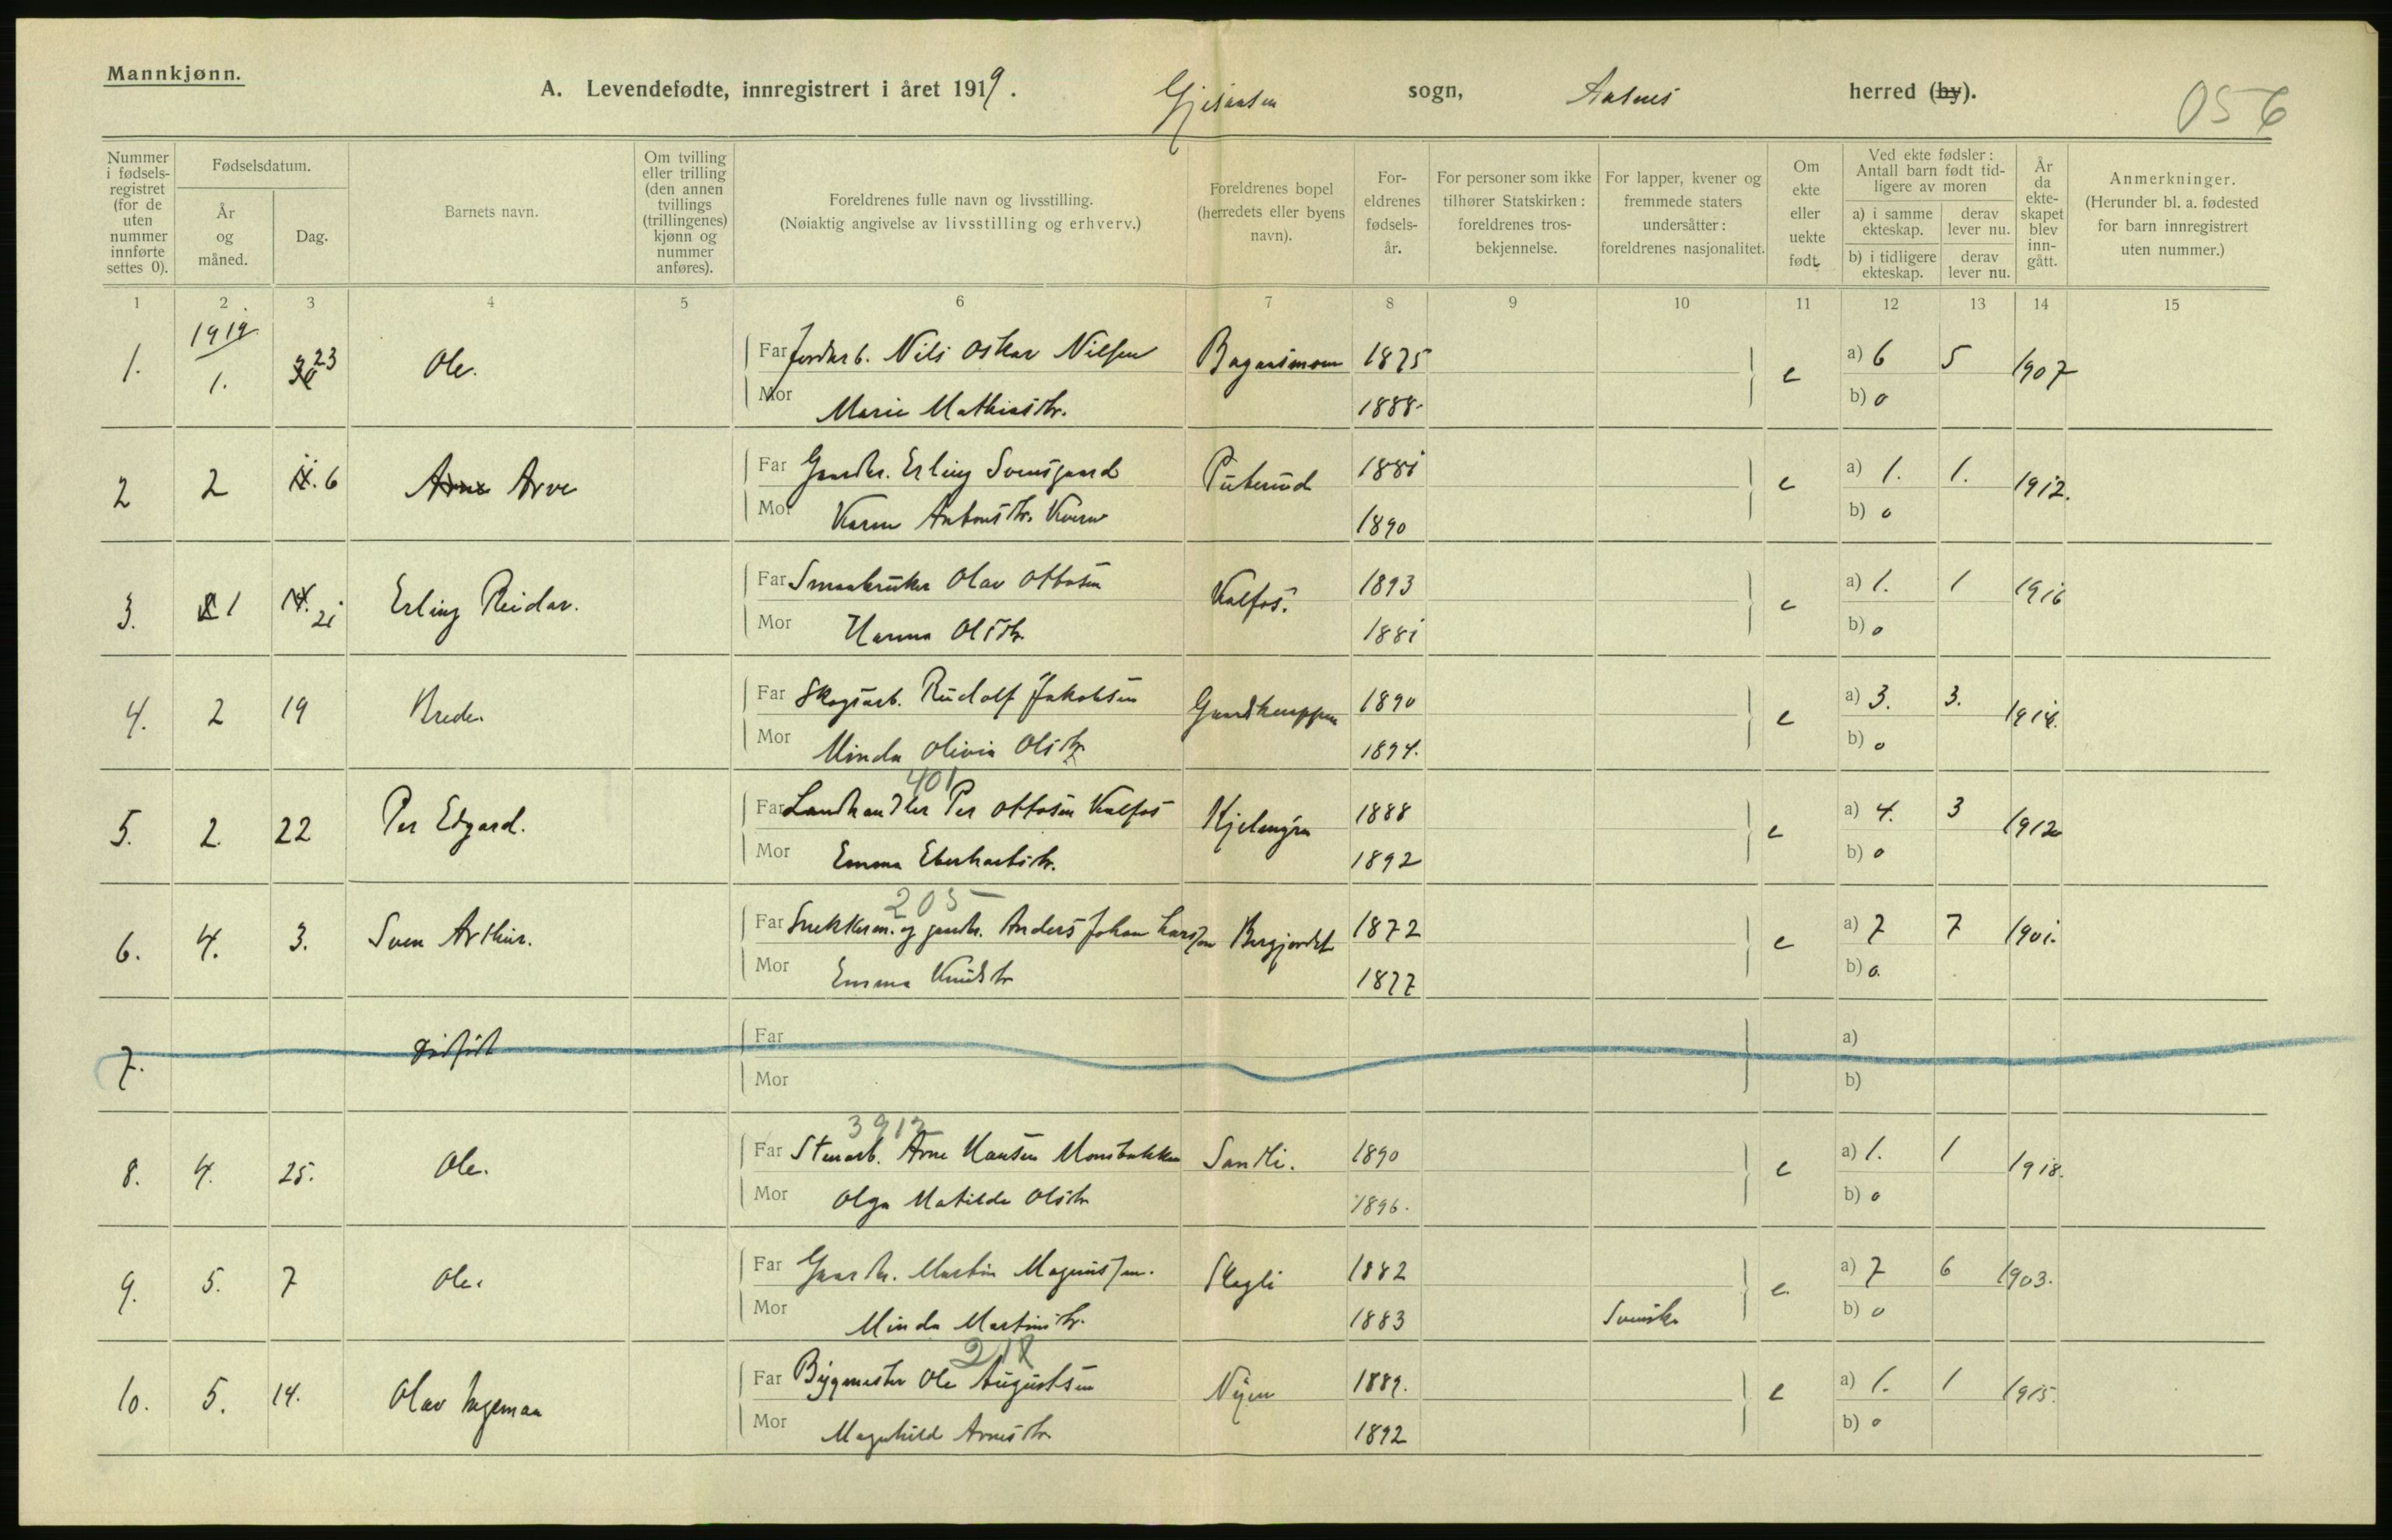 Mannkjønn.
A. Levendefødte, innregistrert i året 1919. Gjesaasen sogn, Aasnes herred (by).
056
Nummer i fødsels-registret (for de uten nummer innførte settes 0).
Fødselsdatum.
År og måned.
Dag.
Barnets navn.
Om tvilling eller trilling (den annen tvillings (trillingenes) kjønn og nummer anføres).
Foreldrenes fulle navn og livsstilling.
(Nøiaktig angivelse av livsstilling og erhverv.)
Foreldrenes bopel (herredets eller byens navn).
For-eldrenes fødsels-år.
For personer som ikke tilhører Statskirken: foreldrenes tros-bekjennelse.
For lapper, kvener og fremmede staters undersåtter: foreldrenes nasjonalitet.
Om ekte eller uekte født
Ved ekte fødsler: Antall barn født tid-ligere av moren
a) i samme ekteskap.
derav lever nu.
b) i tidligere ekteskap.
derav lever nu.
År da ekte-skapet blev inn-gått.
Anmerkninger.
(Herunder bl. a. fødested for barn innregistrert uten nummer.)
1 2 3 4 5 6 7 8 9 10 11 12 13 14 15
1919
1. 1. 23 Ole. Far Jordarb. Nils Oskar Nilsen 1875 e a) 6 5 1907
Mor Marie Mathiasdtr. 1888. b) 0
2 2 6 Arne Arve Far Gaardbr. Erling Svensgaard Puterud 1881 e a) 1. 1. 1912.
Mor Karen Antonsdtr. 1890 b) 0
3. 1 14. 21 Erling Reidar. Far Smaabruker Olav Ottosen Kalfos. 1893 e a) 1. 1 1916
Mor Hanna Olsdtr 1881 b) 0
4. 2 19 Brede. Far Skogsarb. Rudolf Jakobsen 1890 e a) 3. 3. 1914.
Mor Minda Olivia Olsdtr 1894. b) 0
401
5. 2. 22 Per Edgard. Far Landhandler Per Ottosen Kalfos 1888 e a) 4. 3 1912
Mor Emma Eberhartsdtr. 1892 b) 0
205
6. 4. 3. Sven Arthur. Far Snekkerm. og gaardbr. Anders Johan Larsen Bergjordet 1872 e a) 7 7 1901.
Mor Emma Knudsdtr 1877 b) 0.
7. Dødfødt Far a)
Mor b)
3912
8. 4. 25. Ole. Far Stenarb. Arne Hansen Monsbakken Sandli. 1890 e a) 1. 1 1918.
Mor Olga Matilde Olsdtr 1896. b) 0
9. 5. 7 Ole. Far Gaardbr. Martin Magnussen. Skogli 1882 e. a) 7 6 1903.
Mor Minda Martinsdtr. 1883 Svensk b) 0
218
10. 5. 14. Olav Ingemar Far Bygmester Ole Augustsen Nyen 1889. e a) 1. 1 1915.
Mor Magnhild Arnesdtr 1892 b) 0